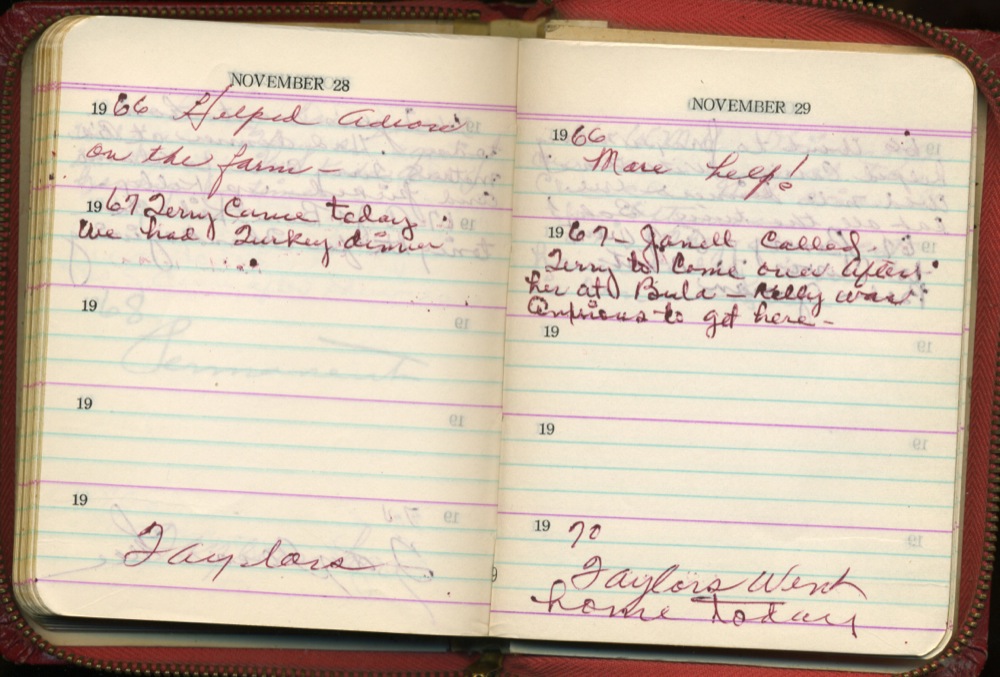 NOVEMBER 28
1966 Helped
on the farm -
1967 Terry Came today
We had Turkey dinner
19
19
19
Taylors
NOVEMBER 29
1966
More help!
1967 - Janell Called -
Terry to Come over after
her at Bula - Kelly was
to get here -
19
19
1970
Taylors Went
home today